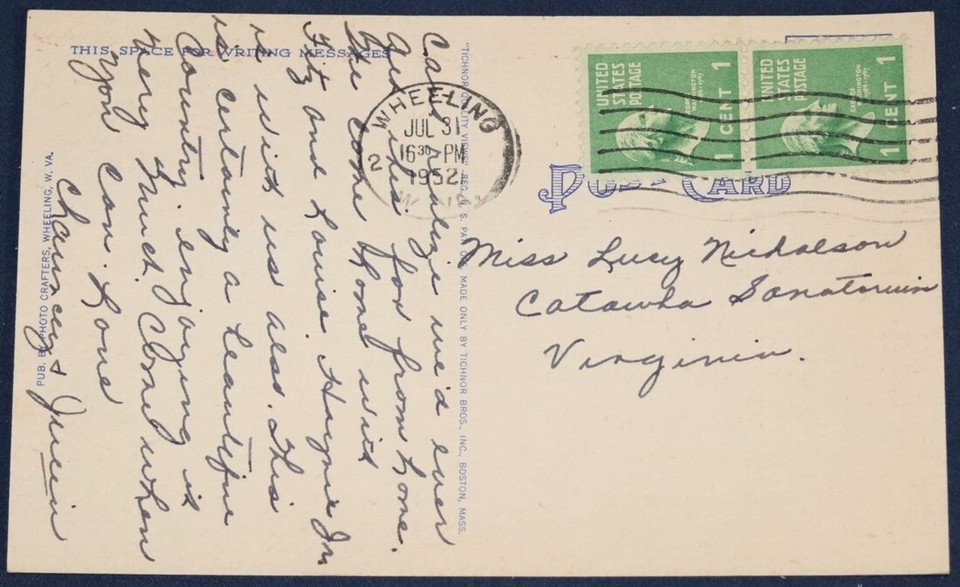 THIS SPACE FOR WRITING MESSAGES
Can't realize we'd ever
get this far from home.
We come home with
Fitz and Louise. Haynie Jr
is with us also. This
is certainly a beautiful
Country. enjoying it
very much. Come when
you can. Love
Chauncey &
PUB. BY PHOTO CRAFTERS, WHEELING, W. VA.
MADE ONLY BY TICHNOR BROS., INC., BOSTON, MASS.
WHEELING
JUL 31
16 30 PM
1952
2
UNITED
STATES
POSTAGE
1 CENT 1
UNITED
STATES
POSTAGE
GEORGE
WASHINGTON
1 CENT 1
POST CARD
Miss Lucy Nicholson
Catawba Sanatorium
Virginia.